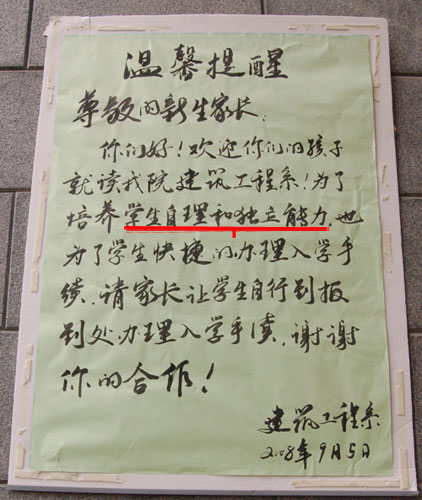 温馨提醒
尊敬的新生家长:
你们好!欢迎你们的孩子
就读我院建筑工程系!为了
培养学生自理和独立能力,也
为了学生快捷的办理入学手
续,请家长让学生自行到报
到处办理入学手续,谢谢
你的合作!
建筑工程系
2008年9月5日